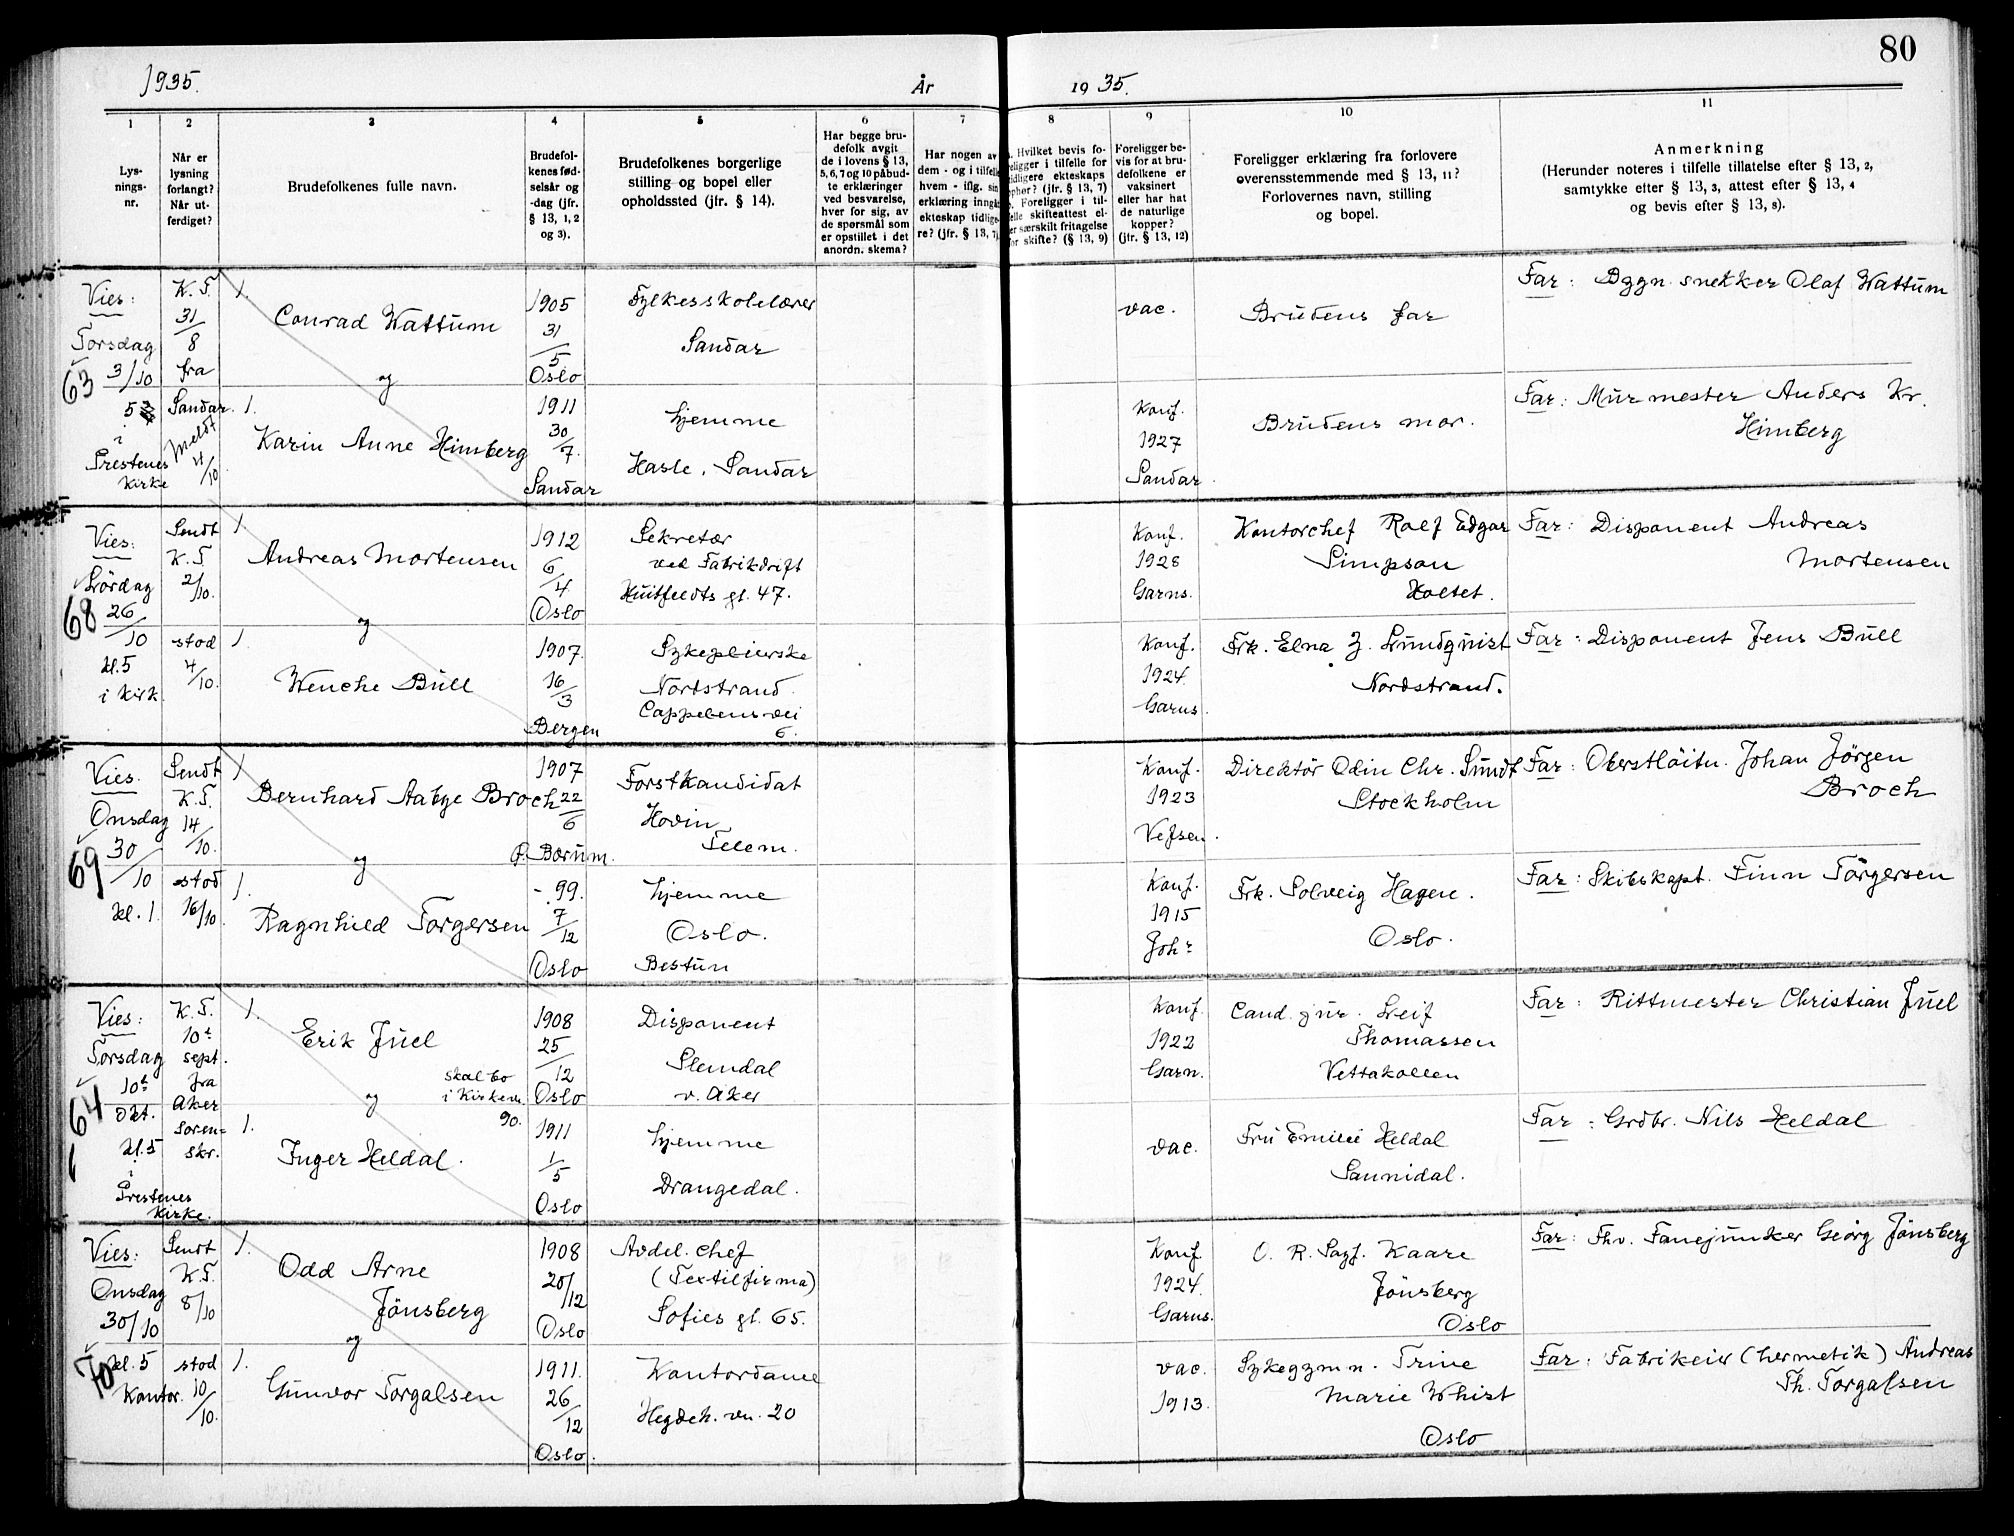 80
1935.
År
19 35.
1
2
3
4
5
6
7
8
9
10
11
Lys-
nings-
nr.
Når er
lysning
forlangt?
Når ut-
ferdiget?
Brudefolkenes fulle navn.
Brudefol-
kenes fød-
selsår og
-dag (jfr.
§ 13, 1, 2
og 3).
Brudefolkenes borgerlige
stilling og bopel eller
opholdssted (jfr. § 14).
Har begge bru-
defolk avgit
de i lovens § 13,
5, 6, 7 og 10 påbud-
te erklæringer
ved besvarelse,
hver for sig, av
de spørsmål som
er opstillet i det
anordn. skema?
Har nogen av
dem - og i tilfelle
hvem - iflg. sin
erklæring inngått
ekteskap tidlige-
re? (jfr. § 13, 7)
Hvilket bevis fo-
religger i tilfelle for
tidligere ekteskaps
ophør? (jfr. § 13, 7)
Foreligger i til-
felle skifteattest el-
ler særskilt fritagelse
for skifte? (§ 13, 9)
Foreligger be-
vis for at bru-
defolkene er
vaksinert
eller har hat
de naturlige
kopper?
(jfr. § 13, 12)
Foreligger erklæring fra forlovere
overensstemmende med § 13, 11?
Forlovernes navn, stilling
og bopel.
Anmerkning
(Herunder noteres i tilfelle tillatelse efter § 13, 2,
samtykke efter § 13, 3, attest efter § 13, 4
og bevis efter § 13, 8).
63
Vies:
Torsdag
3/10
5
i
Prestenes
Kirke
K. T.
31/8
fra
Sandar.
Meldt
4/10
1.
Conrad Wattum
og
1.
Karin Anne Himberg
1905
31/5
Oslo
1911
30/7.
Sandar
Fylkesskolelærer
Sandar
hjemme
Hasle, Sandar
vac.
Konf.
1927
Sandar.
Brudens far
Brudens mor.
Far: Bygn. snekker Olaf Wattum
Far: Murmester Anders Kr.
Himberg
68
Vies:
Lördag
26/10
kl. 5
i kirk.
Sendt
K. T
2/10.
stod
4/10.
1
Andreas Mortensen
og
1
Wenche Bull
1912
6/4
Oslo
1907.
16/3
Bergen
Sekretær
ved Fabrikdrift
Huitfeldts gt. 47.
Sykepleierske
Nordstrand.
Cappelens vei
6.
Konf.
1928
Garns.
Konf.
1924.
Garns.
Kontorchef Rolf Edgar
Simpson
Holtet.
Frk. Elna J. Lundquist
Nordstrand.
Far: Disponent Andreas
Mortensen
Far: Disponent Jens Bull
69
Vies.
Onsdag
30/10
kl. 1.
Sendt
K. T.
14/10.
stod
16/10.
1
Bernhard Aabye Broch
og
1.
Ragnhild Torgersen
1907
22/6
P. Bærum.
- 99.
7/12
Oslo
Forstkandidat
Hovin
Telem.
hjemme
Oslo.
Bestun
Konf.
1923
Vefsen.
Konf.
1915
Joh:
Direktör Odin Chr. Sundt
Stockholm
Frk. Solveig Hagen.
Oslo.
Far: Oberstlöitn. Johan Jörgen
Broch
Far: Skibskapt. Finn Törgersen
64
Vies:
Torsdag
10t
Okt.
kl. 5
i
Prestenes
Kirke.
K. T.
10t
sept.
fra
Aker
Soren-
skr.
1.
Erik Juel
skal bo
i Kirkev.
90.
og
1.
Inger Heldal.
1908
25/12
Oslo
1911
1/5
Oslo
Disponent
Slemdal
v. Aker
hjemme
Drangedal.
Konf.
1922
Garn.
vac.
Cand. jur. Leif
Thomassen
Vettakollen
Fru Emilie Heldal
Sannidal.
Far: Rittmester Christian Juel
Far: Grdbr. Nils Heldal
70
Vies:
Onsdag
30/10
kl. 5
Kontor.
Sendt
K. T.
8/10
stod
10/10.
1.
Odd Arne
Jönsberg
og
1.
Gunvor Torgalsen
1908
20/12
Oslo
1911.
26/12
Oslo.
Avdel. chef
(Textilfirma)
Sofies gt. 65.
Kontordame
Hegdeh. vn. 20
Konf
1924.
Garns.
vac.
1913.
O. R. Sagf. Kaare
Jönsberg
Oslo
Sykegymn. Trine
Marie Whist
Oslo
Far: Fhv. Fanejunker Georg Jönsberg
Far: Fabrikeier (hermetik) Andreas
Th. Torgalsen